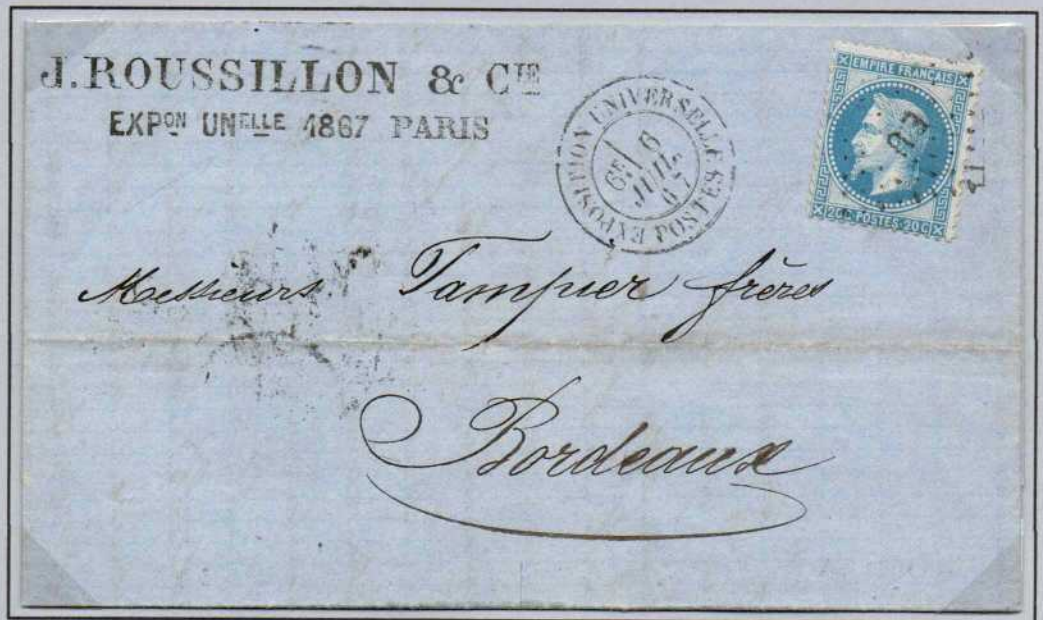 J. ROUSSILLON & CIE
EXPON UNELLE 1867 PARIS
EXPOSITION UNIVERSELLE POSTES
6E
6
JUIL
67
EMPIRE FRANÇAIS
EU
20C POSTES 20C
Messieurs Tampier frères
Bordeaux